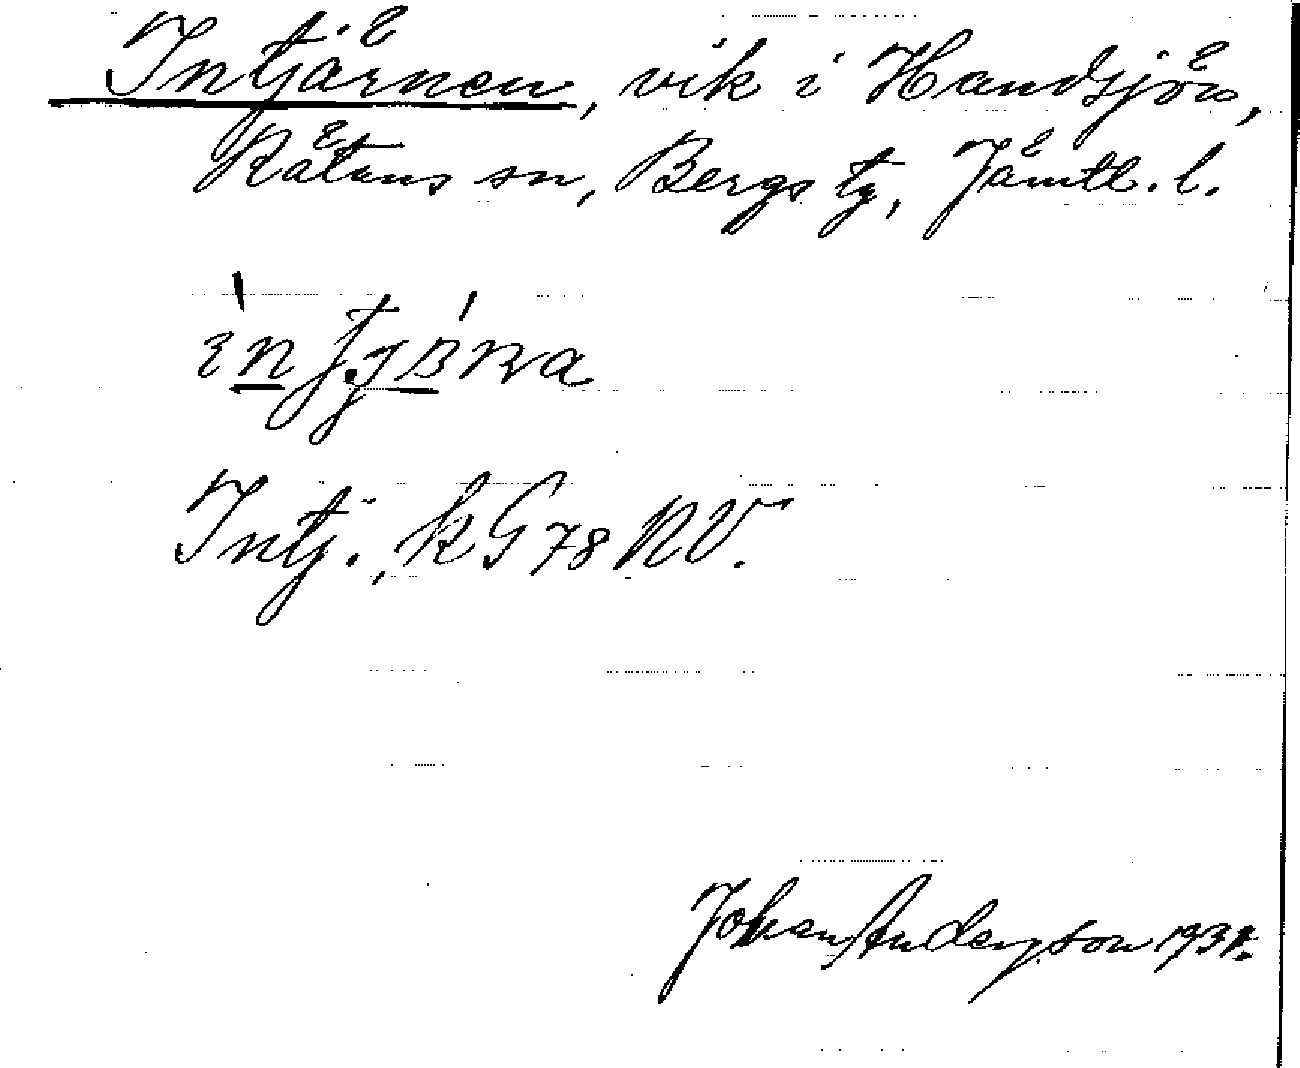 Intjärnen, vik i Handsjön,
Rätans sn, Bergs tg, Jämtl. l.
Intj., k G 78 NV.
Johan Anderzson 1931.